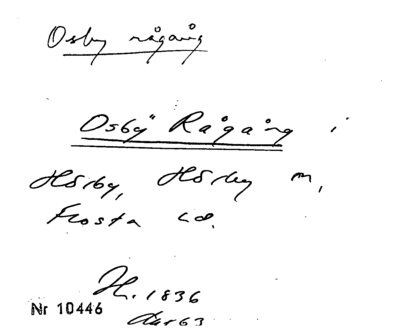 Osby rågång
Osby Rågång i
Hörby, Hörby m,
Frosta hd.
H. 1836
Nr 10446